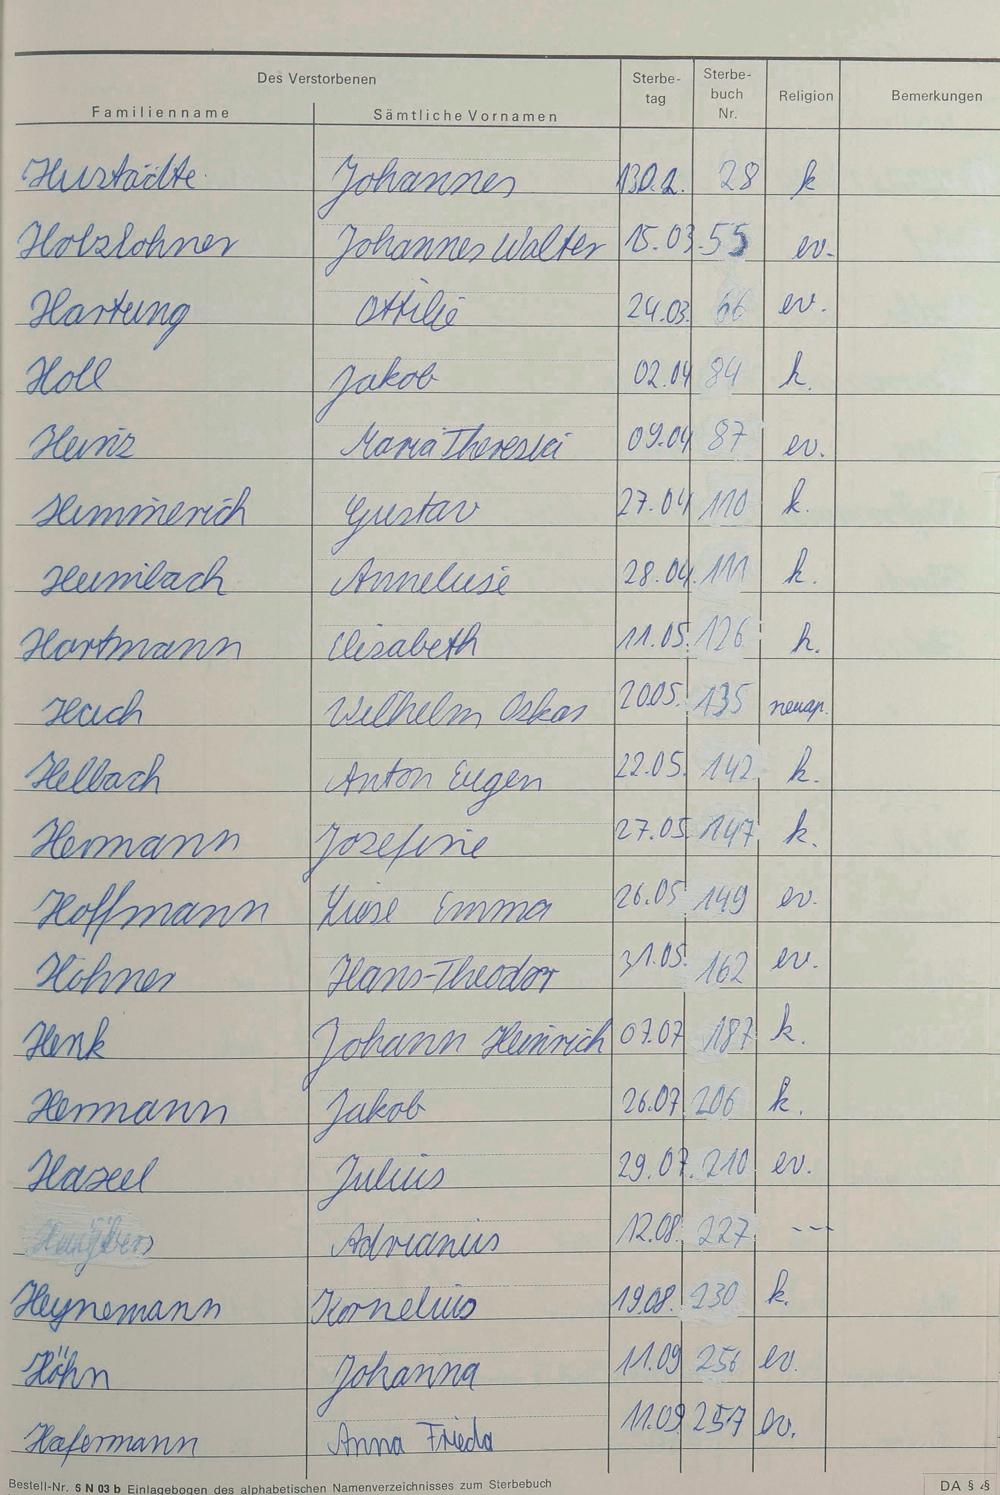 Des Verstorbenen Sterbe- Sterbe-
tag buch Religion Bemerkungen
Familienname Sämtliche Vornamen Nr.
Hustädte Johannes 28 k
Holzlohner Johannes Walter 15.03. 55 ev.
Hartung Ottilie 24.03. 66 ev.
Holl Jakob 02.04 84 k.
Heinz Maria Theresia 09.04 87 ev.
Hemmerich Gustav 27.04 110 k.
Heimbach Anneliese 28.04. 111 k.
Hartmann Elisabeth 11.05. 126 k.
Hach Wilhelm Oskar 20.05. 135 neuap.
Helbach Anton Eugen 22.05. 142 k.
Hermann Josefine 27.05 147 k.
Hoffmann Liese Emma 26.05 149 ev.
Höhner Hans-Theodor 31.05. 162 ev.
Henk Johann Heinrich 07.07 187 k.
Hermann Jakob 26.07 206 k.
Hasel Julius 29.07. 210 ev.
Adrianus 12.08. 227 ---
Heynemann Kornelius 19.08. 230 k.
Höhn Johanna 11.09 256 ev.
Hafermann Anna Frieda 11.09 257 ev.
Bestell-Nr. 5 N 03 b Einlagebogen des alphabetischen Namenverzeichnisses zum Sterbebuch DA § 4